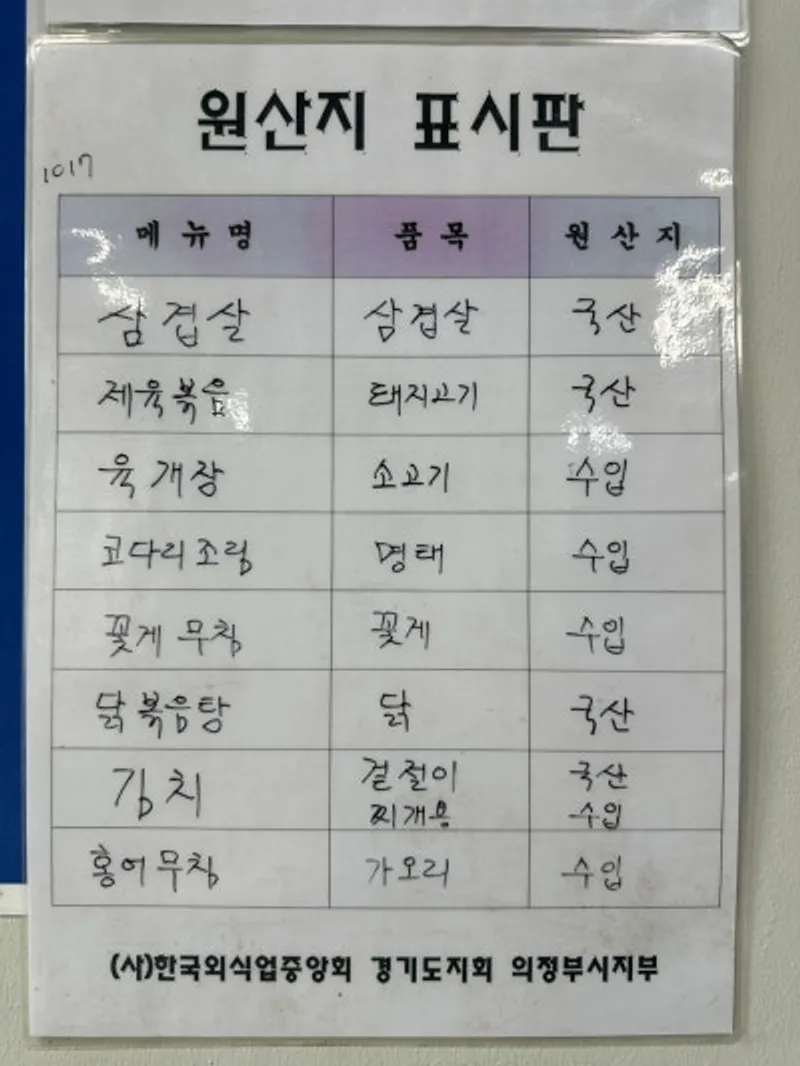 원산지 표시판
1017
메뉴명 품목 원산지
삼겹살 삼겹살 국산
제육볶음 돼지고기 국산
육개장 소고기 수입
코다리조림 명태 수입
꽃게무침 꽃게 수입
닭볶음탕 닭 국산
김치 겉절이 국산
찌개용 수입
홍어무침 가오리 수입
(사)한국외식업중앙회 경기도지회 의정부시지부